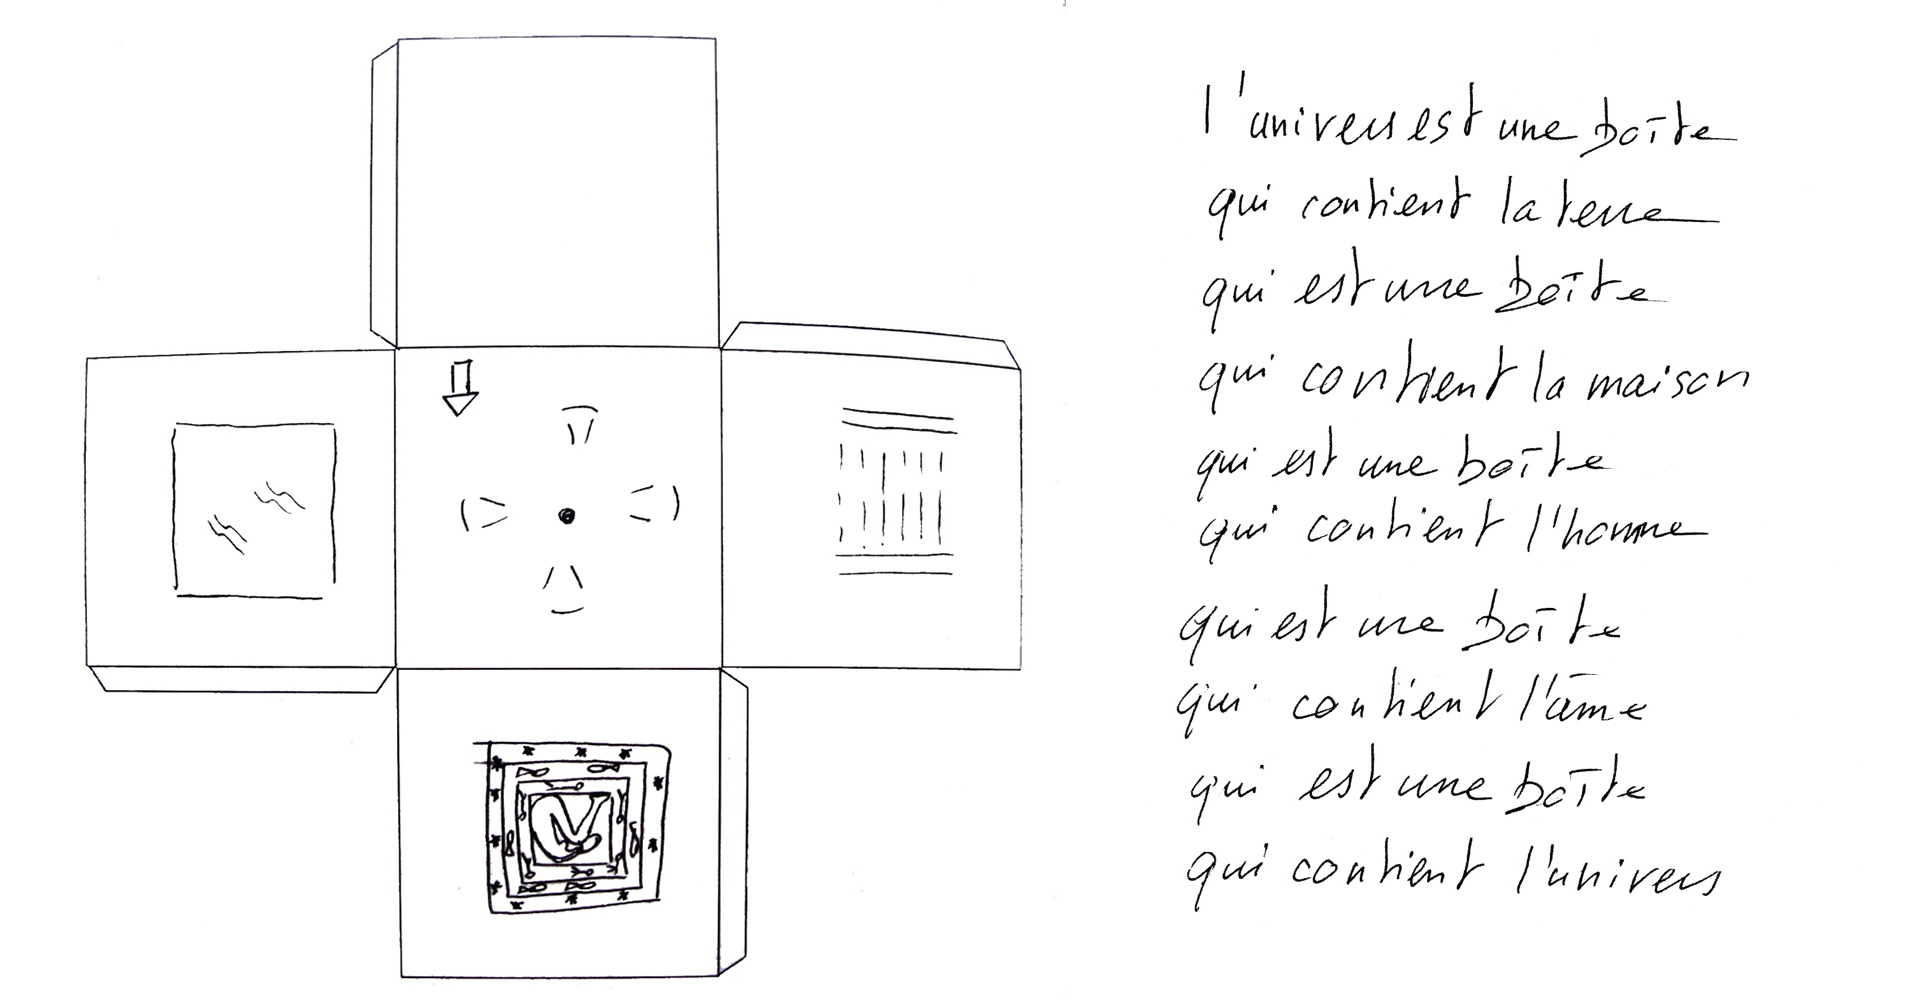 l'univers est une boîte
qui contient la terre
qui est une boîte
qui contient la maison
qui est une boîte
qui contient l'homme
qui est une boîte
qui contient l'âme
qui est une boîte
qui contient l'univers